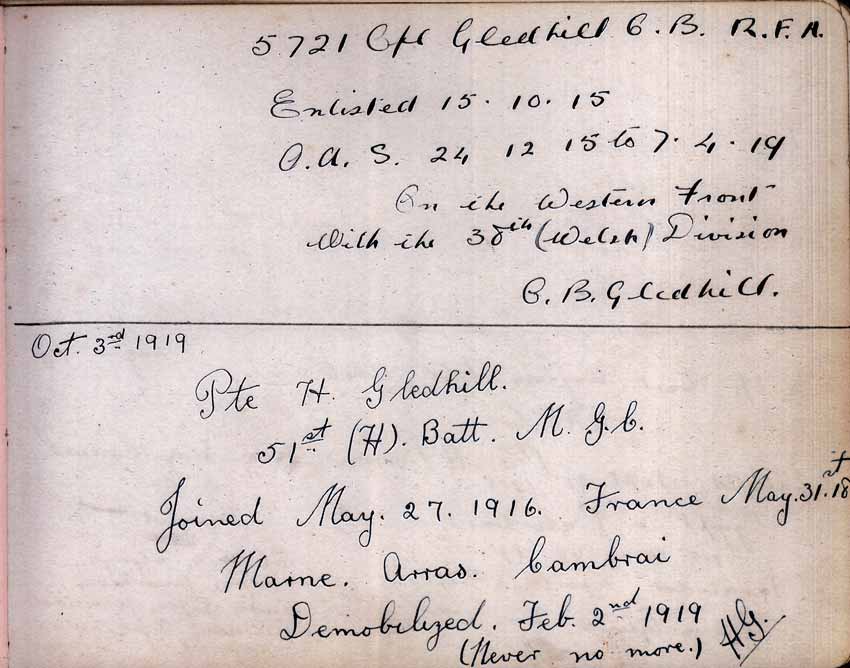 5721 Cpl Gledhill C. B. R.F.A.
Enlisted 15. 10. 15
O.A.S. 24 12 15 to 7. 4. 19
On the Western Front
With the 38th (Welsh) Division
C. B. Gledhill.
Oct. 3rd 1919
Pte H. Gledhill.
51st (H). Batt. M.G.C.
Joined May. 27. 1916. France May. 31st. 18
Marne. Arras. Cambrai
Demobilized. Feb. 2nd 1919
(Never no more.) HG.